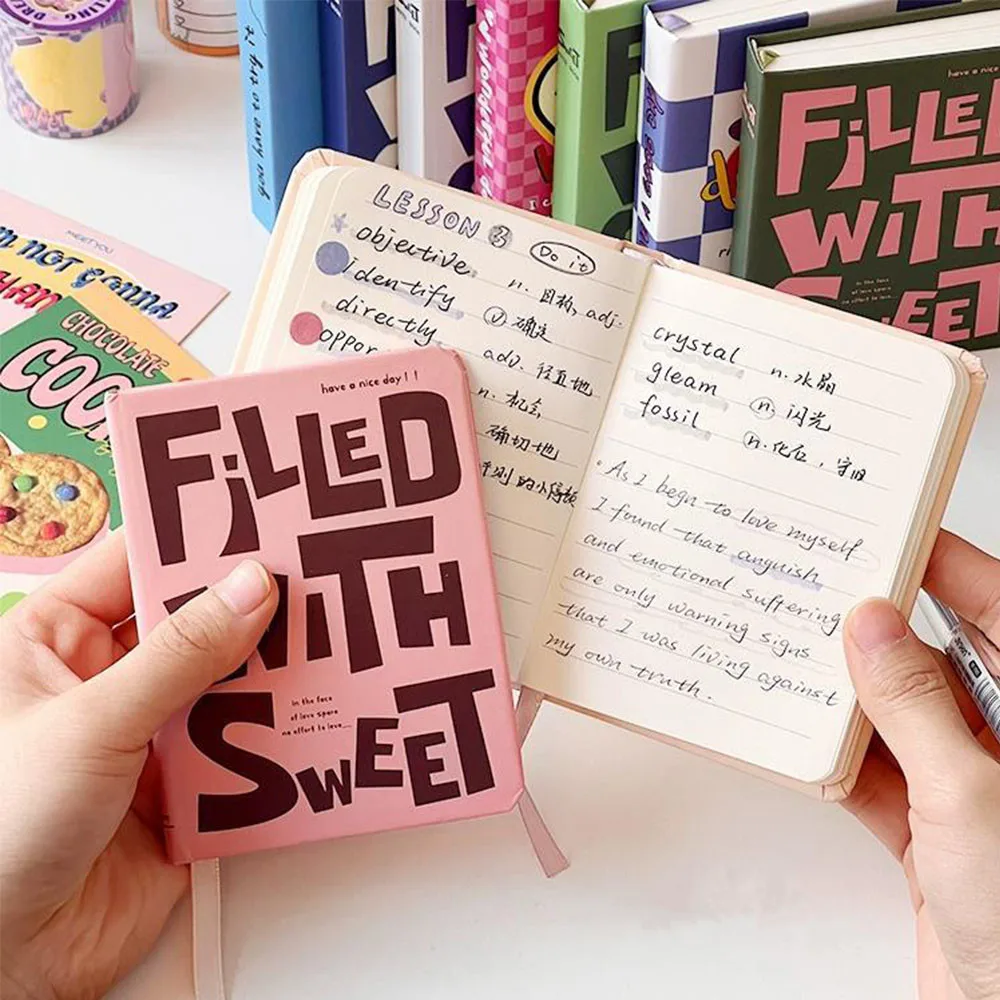 have a nice day!!
FiLLED
WITH
SWEET
in the face
of love spare
no effort to love...
LESSON 3
Do it
objective
n. 目标, adj.
identify
v 确定
directly
adv. 径直地
oppor
n. 机会
确切地
crystal
n. 水晶
gleam
n. 闪光
fossil
n. 化石, 守旧
As I begn to love myself
I found that anguish
and emotional suffering
are only warning signs
that I was living against
my own truth.
have a nice
FiLLED
WITH
SWEET
in the face
of love spare
no effort to love...
MEET YOU
I'M NOT GONNA
CHOCOLATE